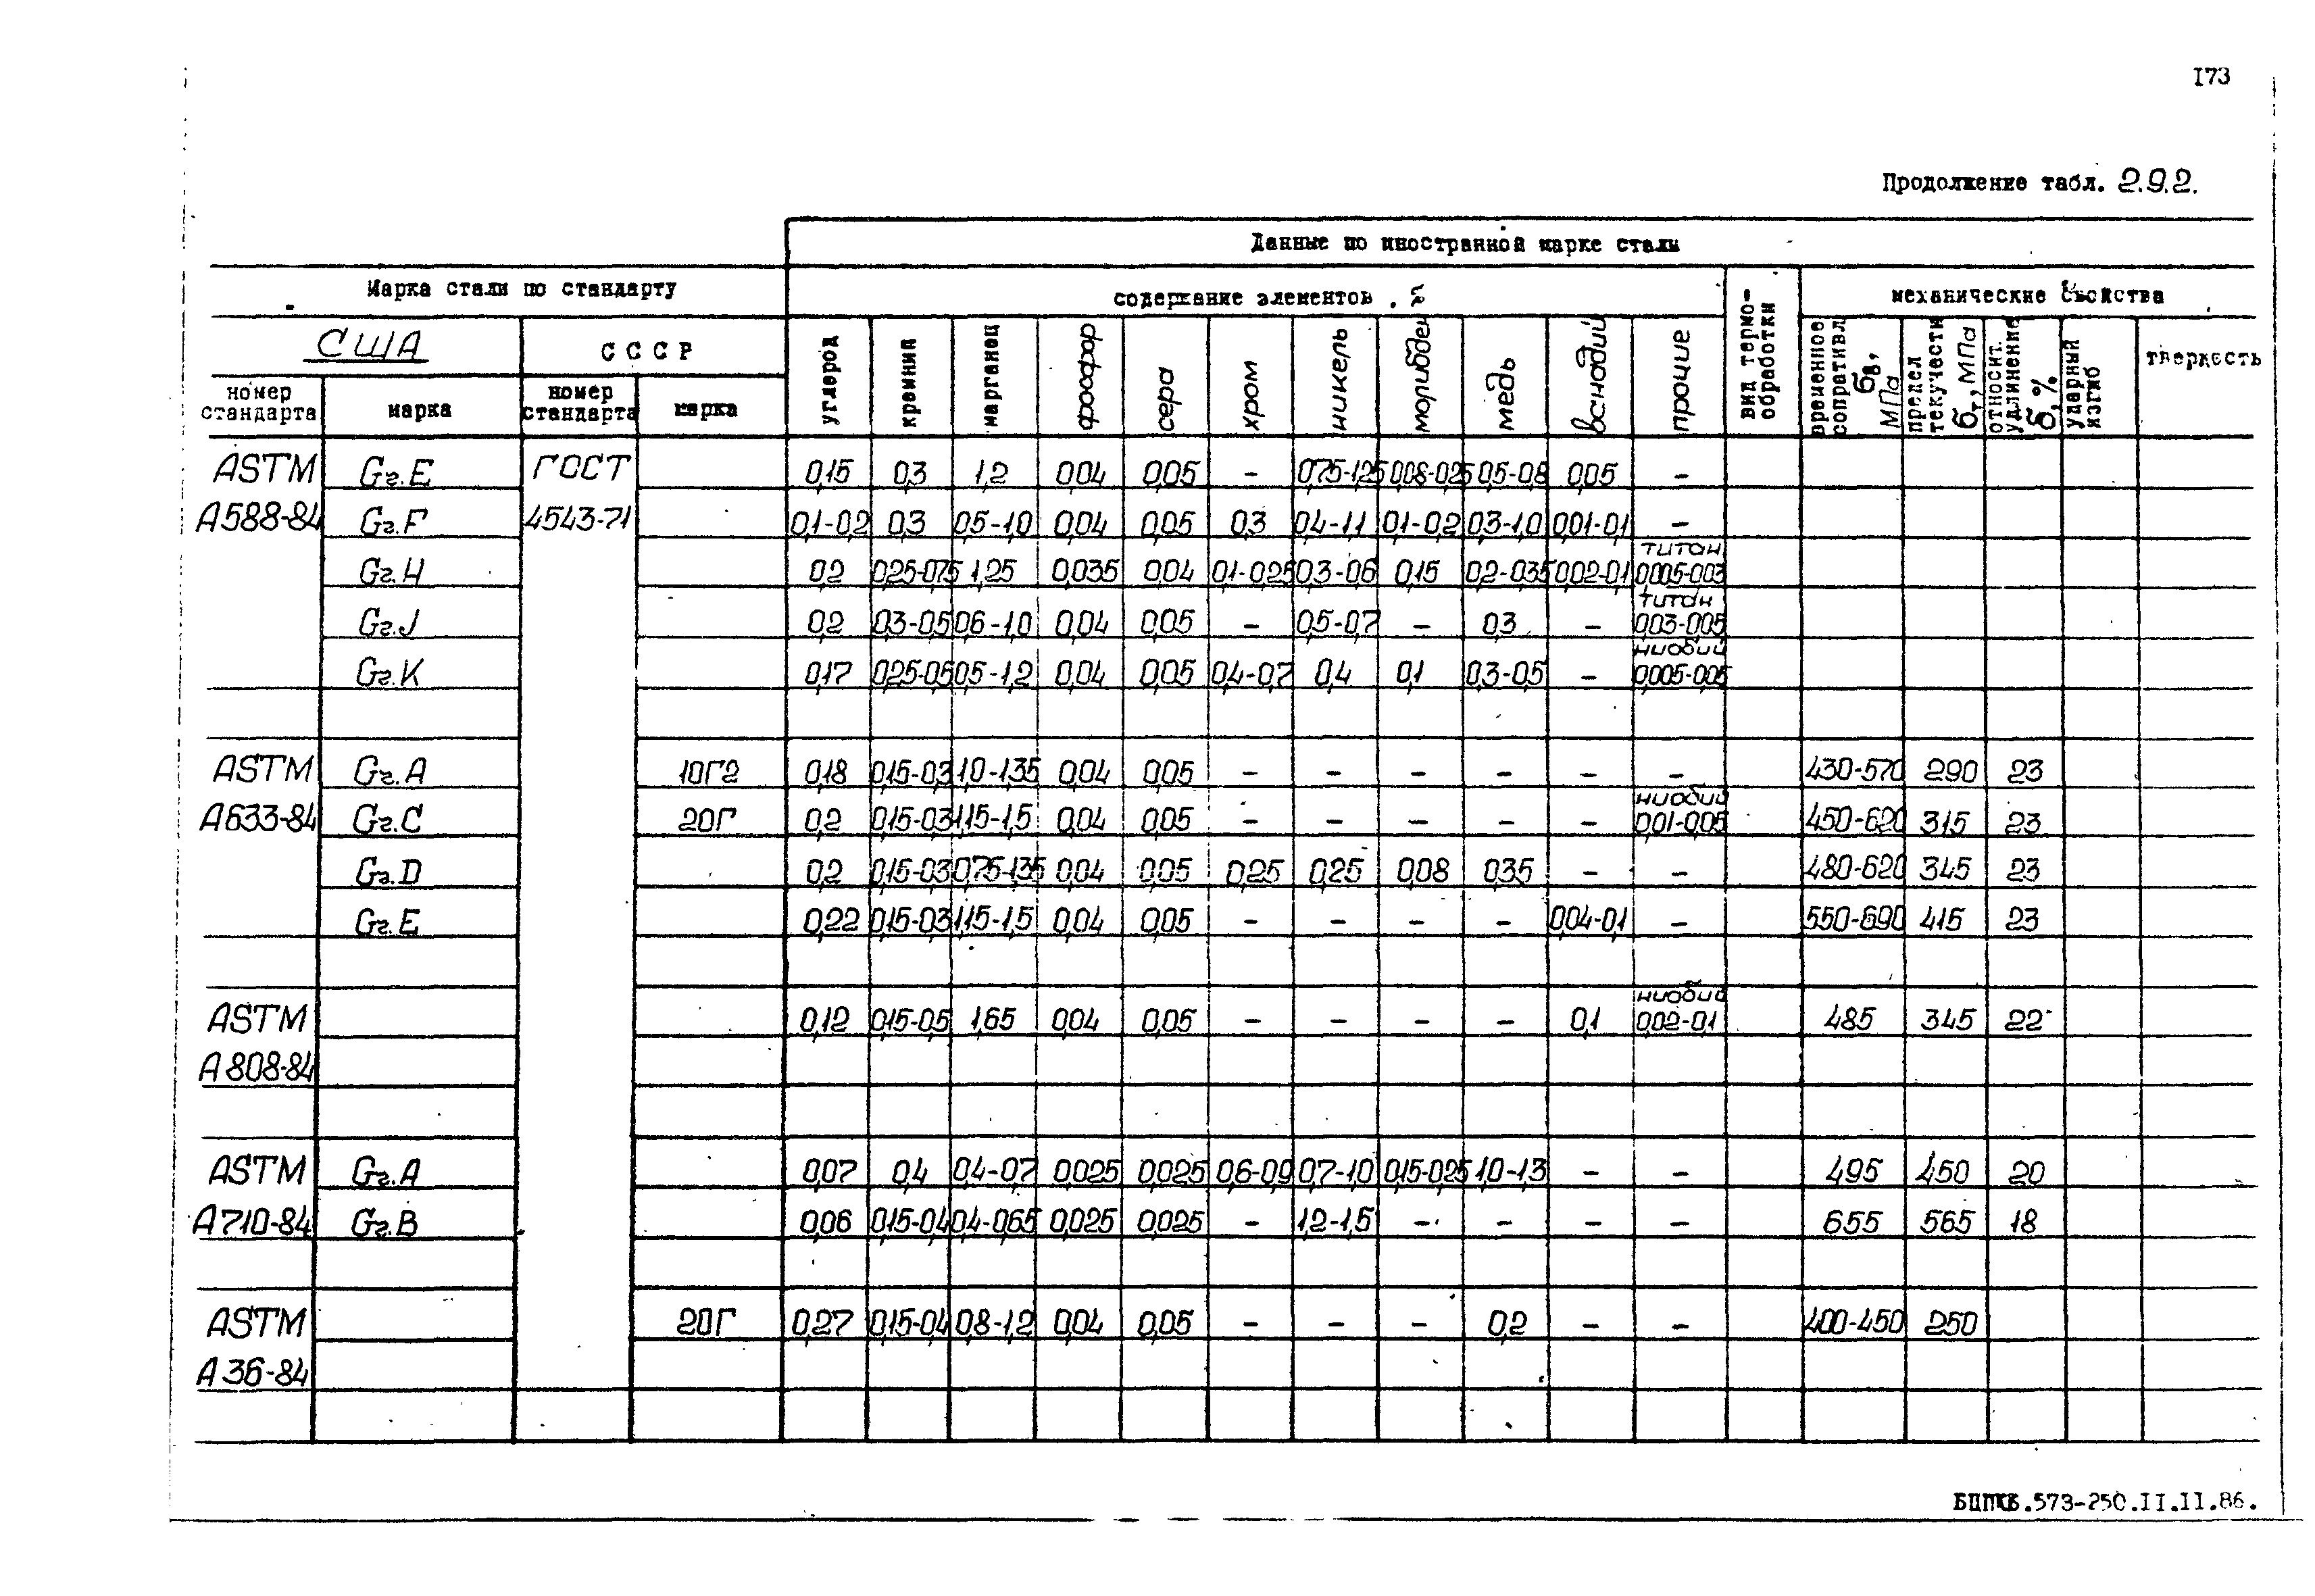 I73
Продолжение табл. 2.9.2.
Данные по иностранной марке стали
Марка стали по стандарту
содержание элементов, %
вид термо-
обработки
механические свойства
США
СССР
углерод
кремний
марганец
фосфор
сера
хром
никель
молибден
медь
ванадий
прочие
временное
сопротивл.
σв,
МПа
предел
текучести
σт, МПа
относит.
удлинение
δ, %
ударный
изгиб
твердость
номер
стандарта
марка
номер
стандарта
марка
ASTM Gr.E ГОСТ 0,15 0,3 1,2 0,04 0,05 - 0,75-1,25 0,08-0,25 0,5-0,8 0,05 -
A588-84 Gr.F 4543-71 0,1-0,2 0,3 0,5-1,0 0,04 0,05 0,3 0,4-1,1 0,1-0,2 0,3-1,0 0,01-0,1 -
титан
Gr.H 0,2 0,25-0,75 1,25 0,035 0,04 0,1-0,25 0,3-0,6 0,15 0,2-0,35 0,02-0,1 0,005-0,03
титан
Gr.J 0,2 0,3-0,5 0,6-1,0 0,04 0,05 - 0,5-0,7 - 0,3 - 0,03-0,05
ниобий
Gr.K 0,17 0,25-0,5 0,5-1,2 0,04 0,05 0,4-0,7 0,4 0,1 0,3-0,5 - 0,005-0,05
ASTM Gr.A 10Г2 0,18 0,15-0,3 1,0-1,35 0,04 0,05 - - - - - - 430-570 290 23
ниобий
A633-84 Gr.C 20Г 0,2 0,15-0,3 1,15-1,5 0,04 0,05 - - - - - 0,01-0,05 450-620 315 23
Gr.D 0,2 0,15-0,3 0,75-1,35 0,04 0,05 0,25 0,25 0,08 0,35 - - 480-620 345 23
Gr.E 0,22 0,15-0,3 1,15-1,5 0,04 0,05 - - - - 0,04-0,1 - 550-690 415 23
ниобий
ASTM 0,12 0,15-0,5 1,65 0,04 0,05 - - - - 0,1 0,02-0,1 485 345 22
A808-84
ASTM Gr.A 0,07 0,4 0,4-0,7 0,025 0,025 0,6-0,9 0,7-1,0 0,15-0,25 1,0-1,3 - - 495 450 20
A710-84 Gr.B 0,06 0,15-0,4 0,4-0,65 0,025 0,025 - 1,2-1,5 - - - - 655 565 18
ASTM 20Г 0,27 0,15-0,4 0,8-1,2 0,04 0,05 - - - 0,2 - - 400-450 250
A36-84
БЦПКБ.573-250.II.II.86.